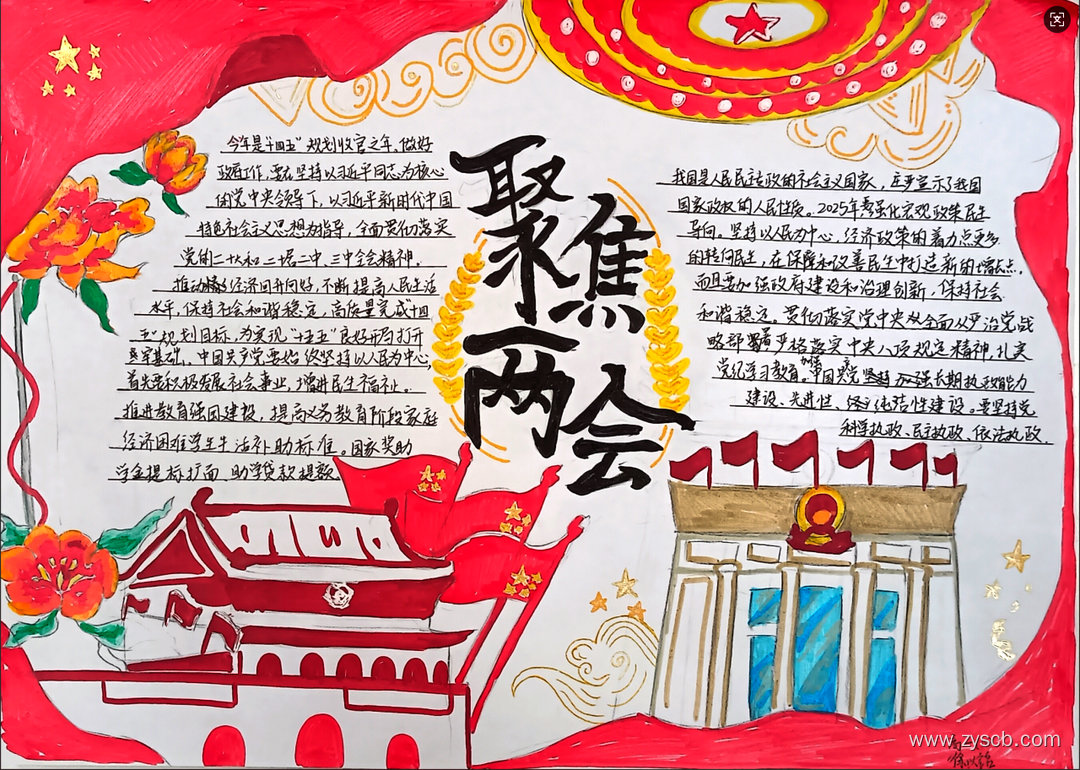 今年是“十四五”规划收官之年，做好
政府工作，要在坚持以习近平同志为核心
的党中央领导下，以习近平新时代中国
特色社会主义思想为指导，全面贯彻落实
党的二十大和二十届二中、三中全会精神。
推动经济回升向好，不断提高人民生活
水平，保持社会和谐稳定，高质量完成十四
五”规划目标，为实现“十五五”良好开局打开
基础。中国共产党要始终坚持以人民为中心，
首先要积极发展社会事业，增进民生福祉。
推进教育强国建设，提高义务教育阶段家庭
经济困难学生生活补助标准。国家奖助
学金提标扩面 助学贷款提额
聚焦
两会
我国是人民民主专政的社会主义国家，庄严宣示了我国
国家政权的人民性质。2025年要强化宏观政策民生
导向。坚持以人民为中心，经济政策的着力点更多
的转向民生，在保障和改善民生中打造新的增长点。
而且要加强政府建设和治理创新，保持社会
和谐稳定。贯彻落实党中央从全面从严治党战
略部署严格落实中央八项规定精神，扎实
党纪学习教育。中国共产党坚持加强长期执政能力
建设、先进性、纯洁性建设。要坚持党
科学执政、民主执政、依法执政。
www.zyscb.com